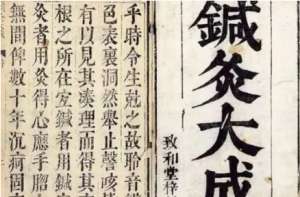 鍼灸大成
致和堂梓
乎時令生尅之故聆音
邑奏裏洞然舉止聲咳
有以見其湊理而得其
根之所在宜鍼者用鍼
灸者用灸得心應手
無間俾數十年沉痾固